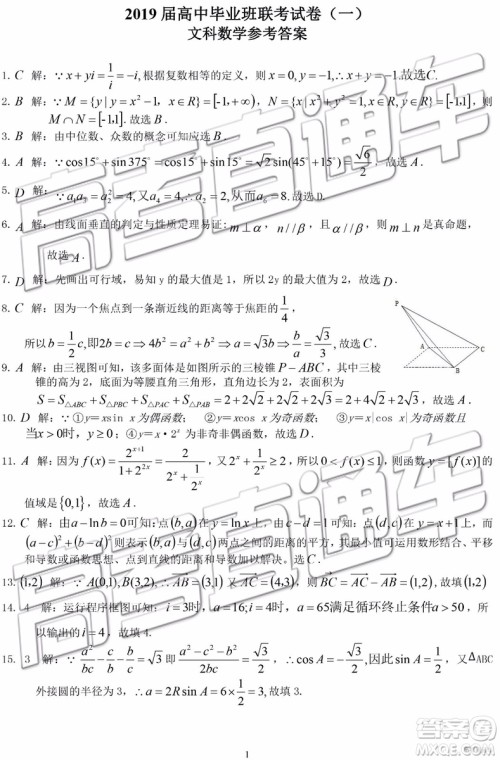 2019 届高中毕业班联考试卷（一）
文科数学参考答案
1. C 解：∵x+yi=1/i=−i,根据复数相等的定义，则 x=0, y=−1,∴故选C.
2. B 解：∵M={y|y=x²−1, x∈R}=[−1,+∞), N={x|x²≤1, x∈R}=[−1,1],则
M∩N=[−1,1].故选 B.
3. B 解：由中位数、众数的概念可知，故选B
4. A 解：∵cos15°+sin375°=cos15°+sin15°=√2sin(45°+15°)=√6/2, 故选A.
5. D 解：
6. A 解：由线面垂直的判定与性质定理易证: m⊥α, n//β, 且 α//β⇒m⊥n 是真命题,
故选A.
7. D 解：先画出可行域，易知 y 的最大值是 1，所以 2y 的最大值是 2，故选 D.
8. C 解：因为一个焦点到一条渐近线的距离等于焦距的 1/4,
所以 b=1/2c,即2b=c⇒4b²=a²+b²⇒a=√3b⇒b/a=√3/3,故选C.
P
A
C
B
9. A 解：由三视图可知，该多面体是如图所示的三棱锥 P−ABC，其中三棱
锥的高为 2，底面为等腰直角三角形，直角边长为 2，表面积为
S=S△ABC+S△PBC+S△PAC+S△PAB=2+2√2+2+2√2=4+4√2, 故选A.
10. D 解：①y=xsin x 为偶函数； ②y=xcos x 为奇函数； ③y=x|cos x|为奇函数且
当x>0时, y≥0；④y=x•2ˣ 为非奇非偶函数, 故选D.
11. A 解：因为 f(x)=2ˣ⁺¹/(1+2²ˣ), 又 2ˣ+1/2ˣ≥2, 所以 0<f(x)≤1, 则函数 y=[f(x)]的
值域是{0,1},故选A.
12. C 解：由a−lnb=0可知: 点(b,a)在曲线y=lnx上,由c−d=1可知: 点(d,c)在直线y=x+1上, 而
(a−c)²+(b−d)²则表示点(b,a)与(d,c)两点之间的距离的平方, 由此构造函数、平移
和导数或函数思想、点到直线的距离和导数加以解决。选C.
13. (1,2) 解：∵A(0,1),B(3,2),∴AB=(3,1) 又AC=(4,3), 则 BC=AC−AB=(1,2), 故填(1,2)
14. 4 解：运行程序框图可知: i=3时, a=16; i=4时, a=65满足循环终止条件 a>50, 所
以输出的 i=4, 故填4.
15. 3 解：∵a²/bc−c/b−b/c=√3 即 (a²−c²−b²)/2bc=√3/2, ∴cosA=−√3/2,因此 sin A=1/2, 又△ABC
外接圆的半径为 3, ∴a=2R sin A=6×1/2=3, 故填 3.
1
高考直通车